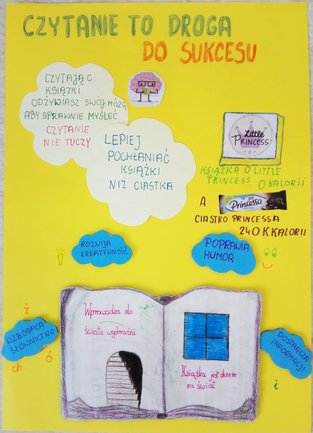 CZYTANIE TO DROGA
DO SUKCESU
CZYTAJĄC
KSIĄŻKI
ODŻYWIASZ SWÓJ MÓZG
ABY SPRAWNIE MYŚLEĆ
CZYTANIE
NIE TUCZY
LEPIEJ
POCHŁANIAĆ
KSIĄŻKI
NIŻ CIASTKA
Little
Princess
KSIĄŻKA O LITTLE
PRINCESS 0 KALORII
A
Princessa
CIASTKO PRINCESSA
240 KKALORII
ROZWIJA
KREATYWNOŚĆ
POPRAWIA
HUMOR
WZBOGACA
SŁOWNICTWO
ż
ch
ó
DOSTARCZA
INFORMACJI
i
Wprowadza do
świata wyobraźni
Książka jest oknem
na świat